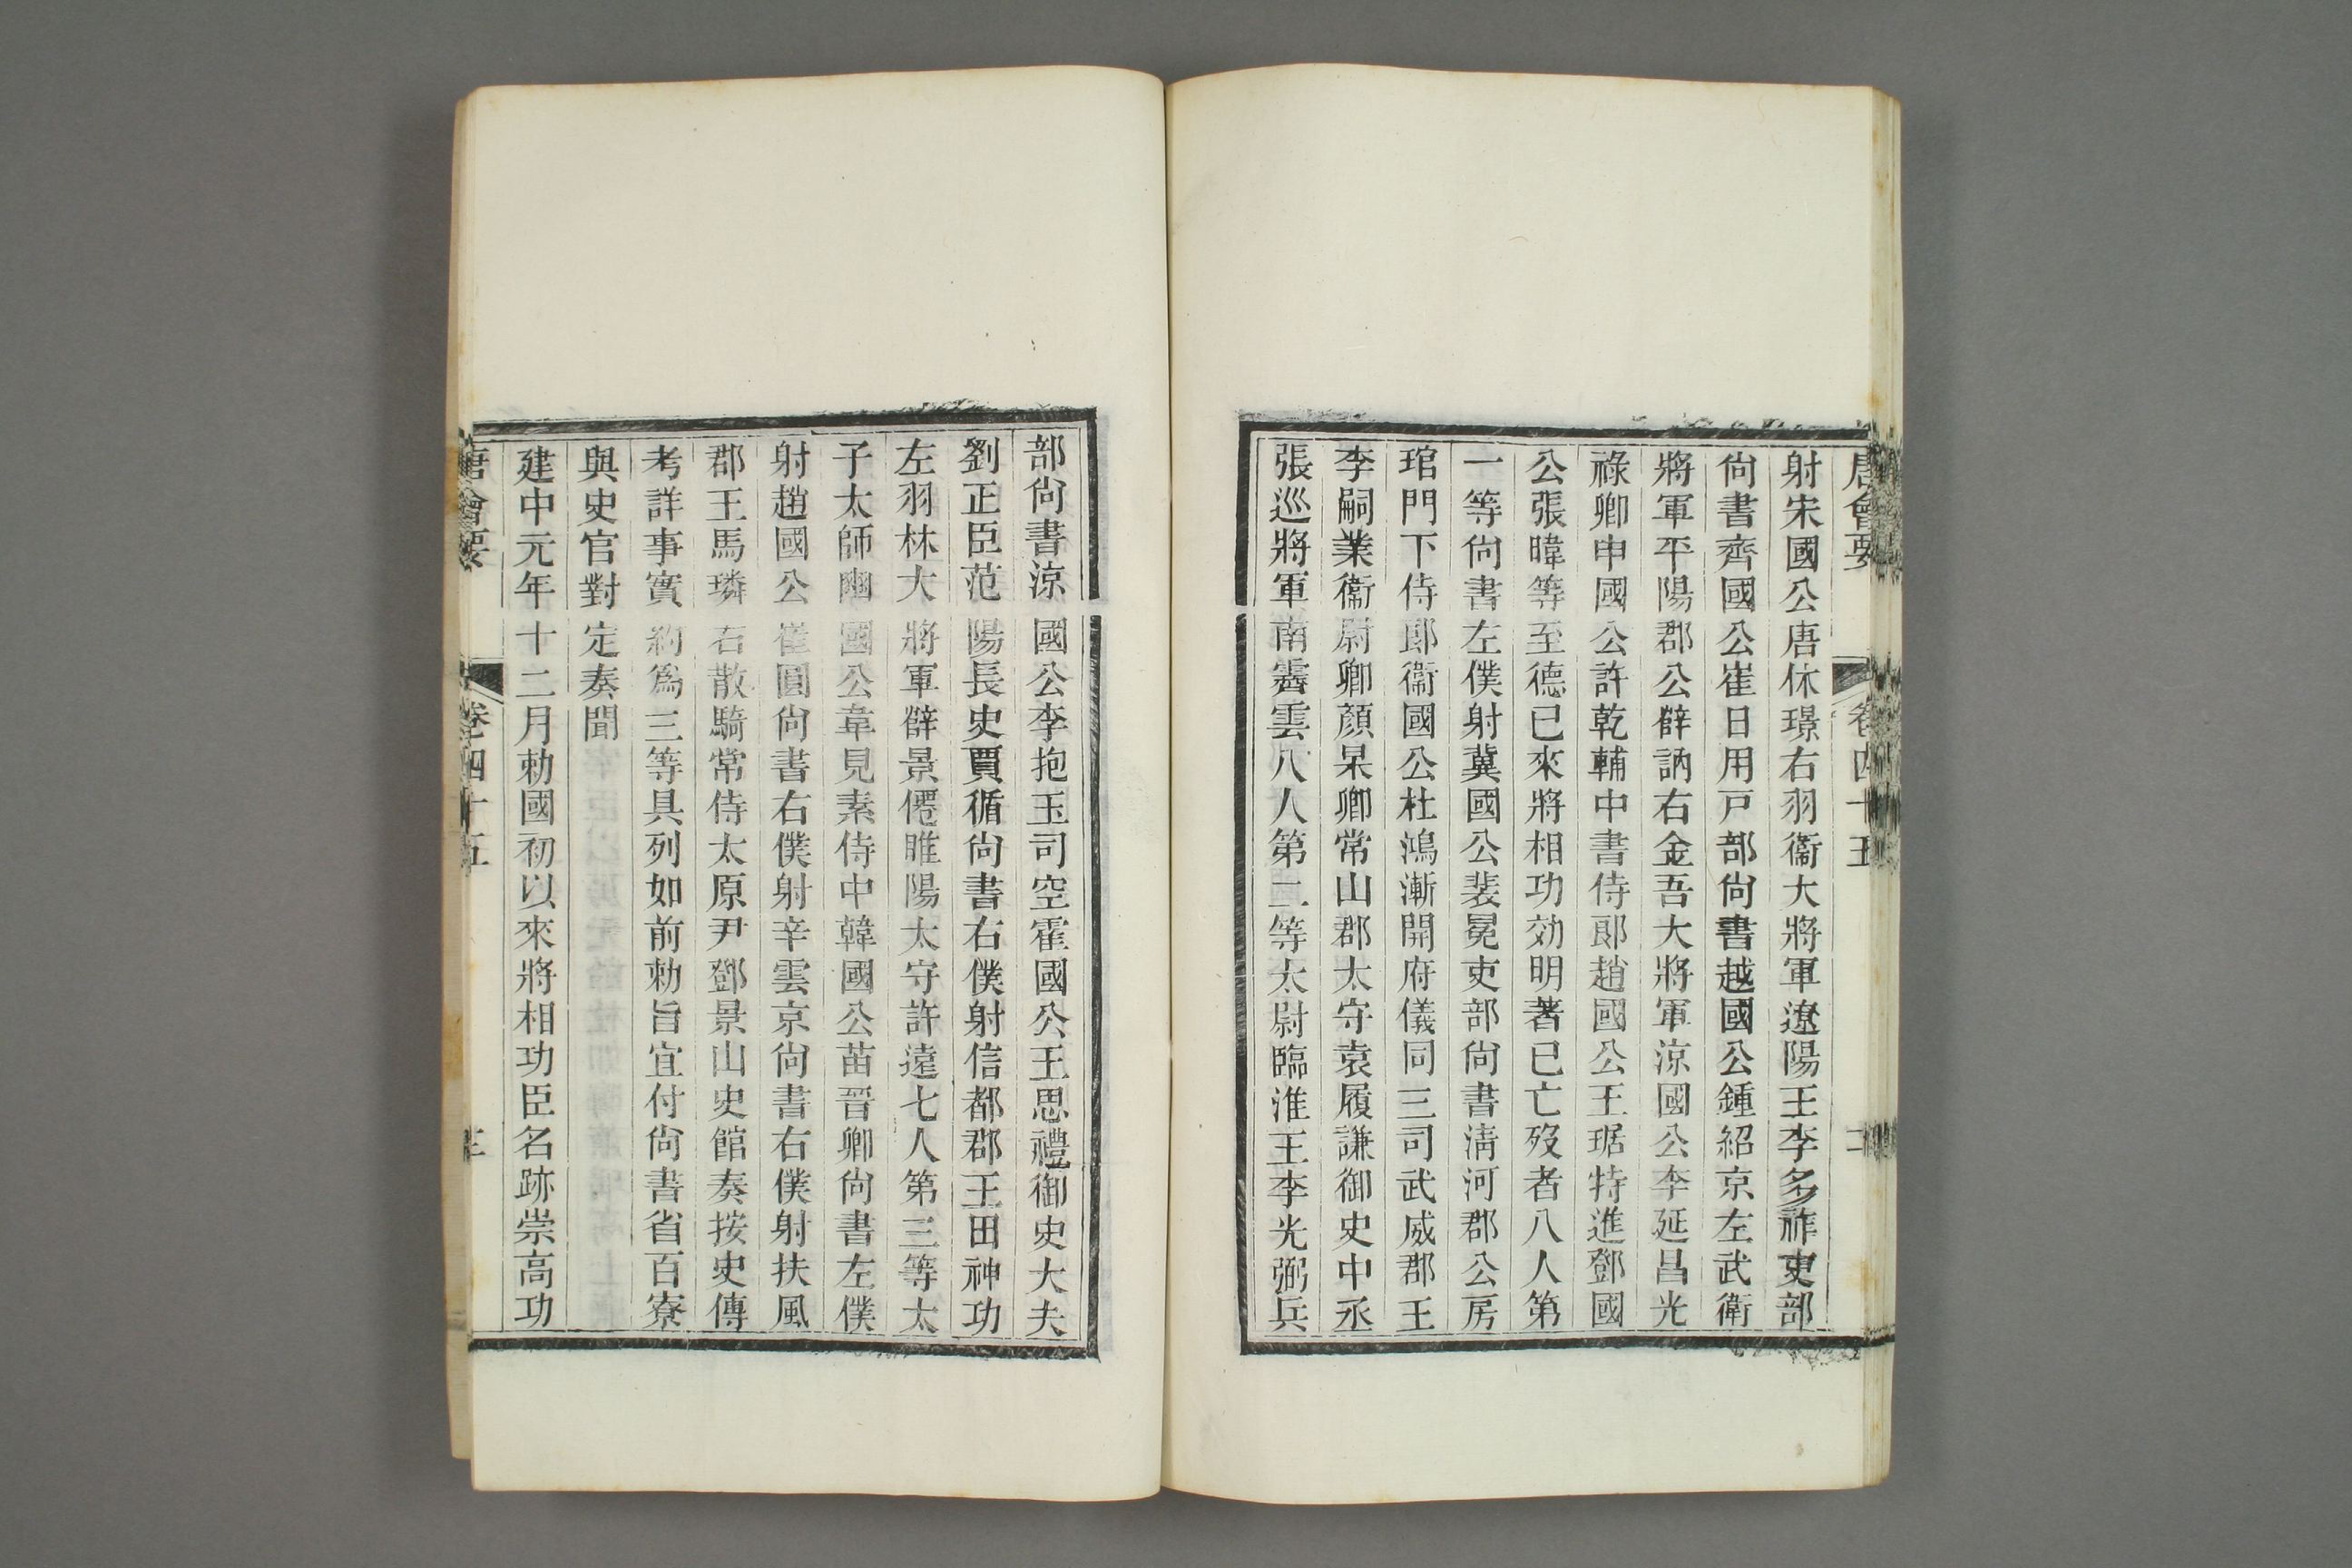 唐會要 卷四十五 二
射宋國公唐休璟右羽衞大將軍遼陽王李多祚吏部
尙書齊國公崔日用戸部尙書越國公鍾紹京左武衛
將軍平陽郡公薛訥右金吾大將軍涼國公李延昌光
祿卿申國公許乾輔中書侍郞趙國公王琚特進鄧國
公張暐等至德已來將相功効明著已亡歿者八人第
一等尙書左僕射冀國公裴冕吏部尙書淸河郡公房
琯門下侍郞衞國公杜鴻漸開府儀同三司武威郡王
李嗣業衞尉卿顏杲卿常山郡太守袁履謙御史中丞
張巡將軍南霽雲八人第二等太尉臨淮王李光弼兵
部尙書涼國公李抱玉司空霍國公王思禮御史大夫
劉正臣范陽長史賈循尙書右僕射信都郡王田神功
左羽林大將軍薛景僊睢陽太守許遠七人第三等太
子太師豳國公韋見素侍中韓國公苗晉卿尙書左僕
射趙國公崔圓尙書右僕射辛雲京尙書右僕射扶風
郡王馬璘右散騎常侍太原尹鄧景山史館奏按史傳
考詳事實約爲三等具列如前勅旨宜付尙書省百寮
與史官對定奏聞
建中元年十二月勅國初以來將相功臣名跡崇高功
唐會要 卷四十五 三